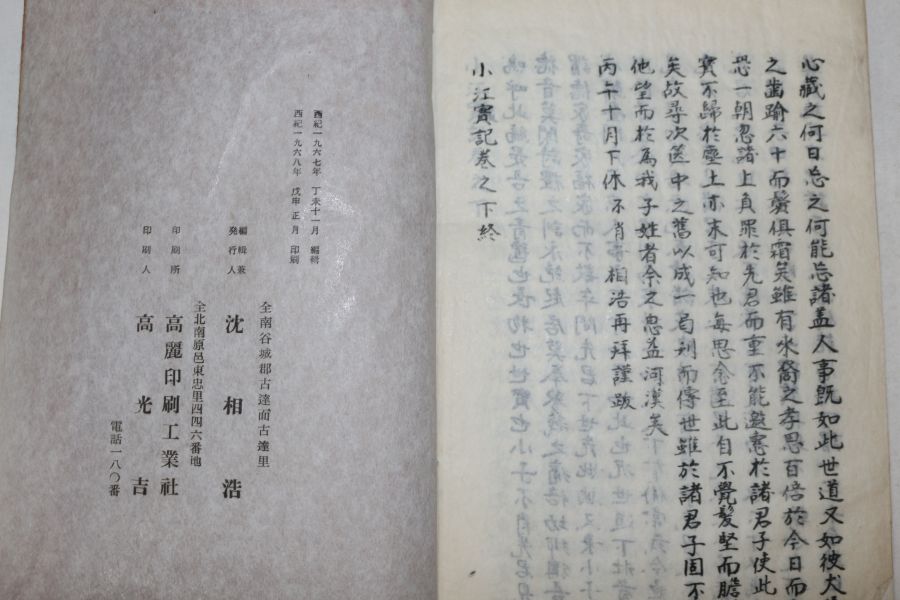 心藏之何日忘之何能忘諸盖人事旣如此世道又如彼犬
之齒踰六十而鬓俱霜矣雖有水裔之孝思百倍於今日而
恐一朝忍諸上負罪於先君而重不能邀憲於諸君子使此
寶不歸於塵土亦未可知也每思念至此自不覺髮竪而膽
矣故尋次篋中之舊以成一局刋而傳世雖於諸君子固不
他望而於為我子姓者余之忠益河漢矣
丙午十月下休不肖相浩再拜謹跋
小江實記卷之下終
西紀一九六七年 丁未十一月 編輯
西紀一九六八年 戊申正月 印刷
全南谷城郡古達面古達里
編輯兼發行人 沈相浩
全北南原邑東忠里四四六番地
印刷所 高麗印刷工業社
印刷人 高光吉
電話一八〇番